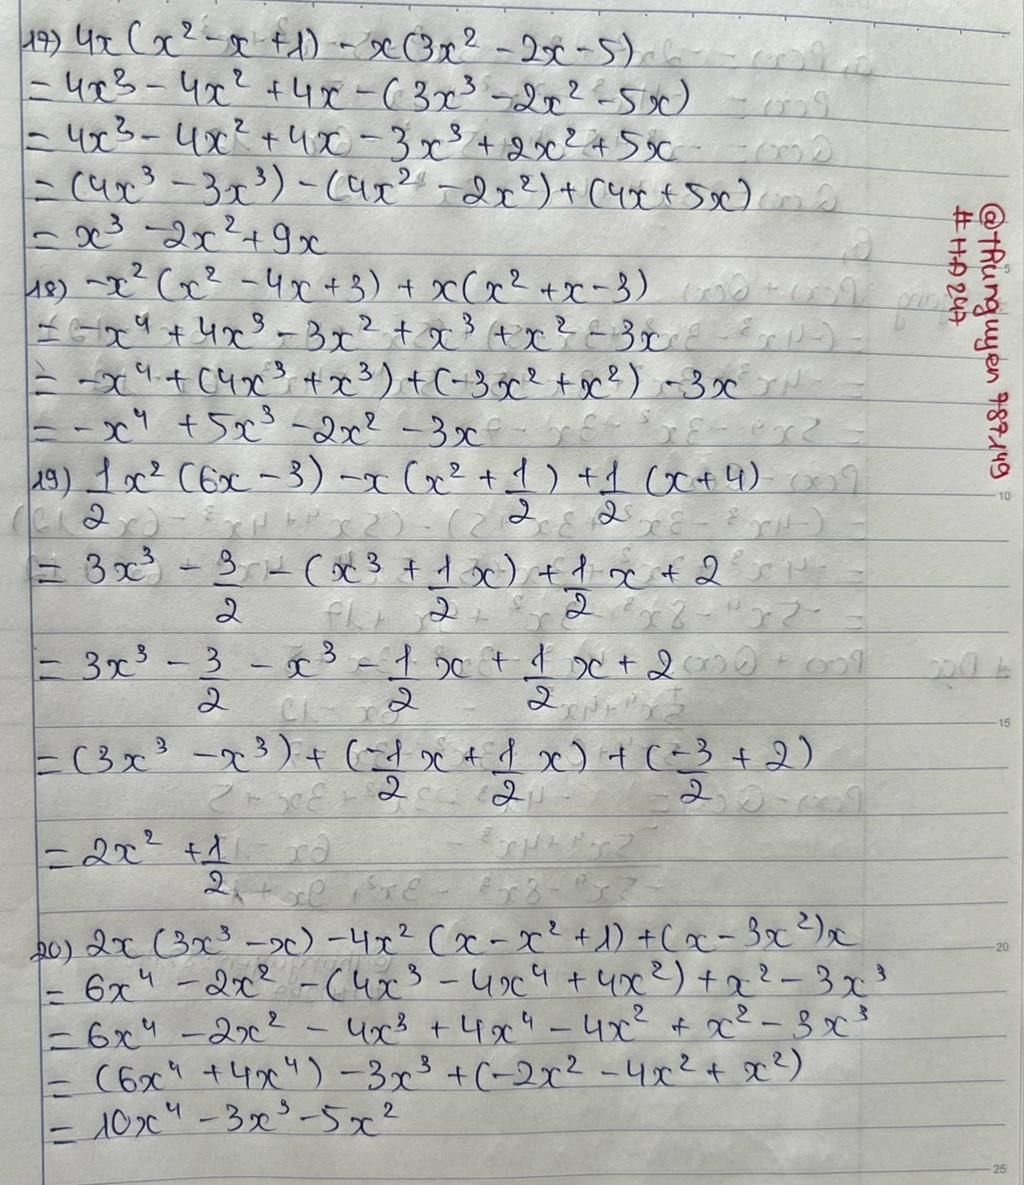 17) 4x(x² - x + 1) - x(3x² - 2x - 5)
= 4x³ - 4x² + 4x - (3x³ - 2x² - 5x)
= 4x³ - 4x² + 4x - 3x³ + 2x² + 5x
= (4x³ - 3x³) - (4x² - 2x²) + (4x + 5x)
= x³ - 2x² + 9x
18) -x²(x² - 4x + 3) + x(x² + x - 3)
= -x⁴ + 4x³ - 3x² + x³ + x² - 3x
= -x⁴ + (4x³ + x³) + (-3x² + x²) - 3x
= -x⁴ + 5x³ - 2x² - 3x
19) 1/2 x² (6x - 3) - x (x² + 1/2) + 1/2 (x + 4)
= 3x³ - 3/2 - (x³ + 1/2 x) + 1/2 x + 2
= 3x³ - 3/2 - x³ - 1/2 x + 1/2 x + 2
= (3x³ - x³) + (-1/2 x + 1/2 x) + (-3/2 + 2)
= 2x² + 1/2
20) 2x (3x³ - x) - 4x² (x - x² + 1) + (x - 3x²)x
= 6x⁴ - 2x² - (4x³ - 4x⁴ + 4x²) + x² - 3x³
= 6x⁴ - 2x² - 4x³ + 4x⁴ - 4x² + x² - 3x³
= (6x⁴ + 4x⁴) - 3x³ + (-2x² - 4x² + x²)
= 10x⁴ - 3x³ - 5x²
@thunguyen787149
#HA247
5
10
15
20
25